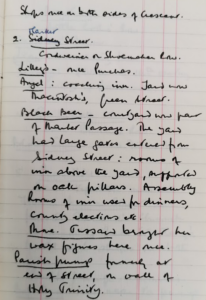 Shops nice on both sides of
Market
2. Sidney Street.
Cordwainer or Shoemaker Row.
Angel: coaching inn. Yard now
Mackintosh's, Green Street.
Black Bear - courtyard now part
of Market Passage. The yard
had large gates entered from
Sidney Street: rooms of
inn above the yard, supported
on oak pillars. Assembly
Rooms of inn used for dinners,
county elections etc.
Mme. Tussaud brought her
wax figures here once.
Parish pump formerly at
end of street, on wall of
Holy Trinity.